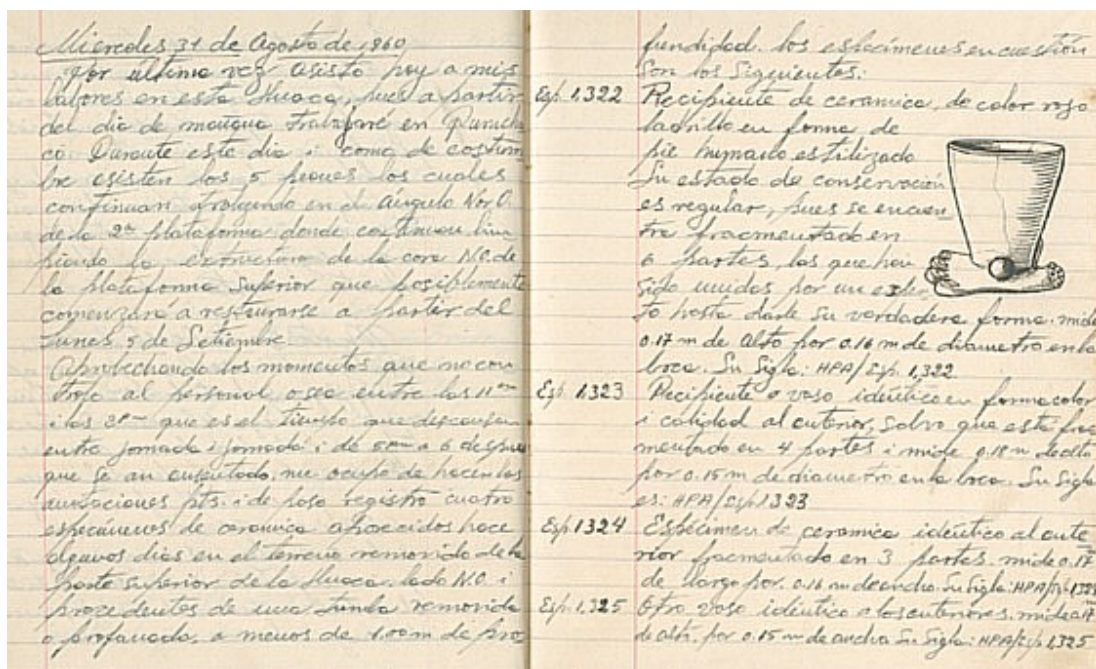 Miercoles 31 de Agosto de 1960
Por ultima vez asisto hoy a mis
labores en esta Huaca, pues a partir
del dia de mañana trabajaré en
co. Durante este dia i como de costum
bre asisten los 5 peones los cuales
continuan trabajando en el Ángulo Nor O.
de la 2ª plataforma donde continuan lim
piando la estructura de la cara N.O. de
la plataforma Superior que posiblemente
comenzará a restaurarse a partir del
Lunes 5 de Setiembre
Aprobechando los momentos que no con
trolo al personal o sea entre las 11am
i las 2pm que es el tiempo que descansan
entre jornada i jornada i de 5pm a 6 despues
que se an ausentado, me ocupo de hacer las
anotaciones pts. i de paso registro cuatro
especímenes de ceramica aparecidos hace
algunos dias en el terreno removido de la
parte superior de la Huaca. lado N.O. i
procedentes de una tumba removida
o profanada, a menos de 1.00 m de pro
fundidad. los especímenes en cuestión
Son los Siguientes:
Esp. 1,322 Recipiente de ceramica, de color rojo
ladrillo en forma de
pie humano estilizado
Su estado de conservación
es regular, pues se encuen
tra fracmentado en
6 partes, las que han
sido unidos por un
to hasta darle su verdadera forma. mide
0.17 m de alto por 0.16 m de diametro en la
boca. Su Sigla: HPA/Esp. 1,322
Esp. 1,323 Recipiente o vaso idéntico en forma color
i calidad al anterior, salvo que está frac
mentado en 4 partes i mide 0.18 m de alto
por 0.15 m de diametro en la boca. Su Sigla
es: HPA/Esp. 1323
Esp. 1324 Especímen de ceramica idéntico al ante
rior fracmentado en 3 partes. mide 0.17
de largo por 0.16 m de ancho. Su Sigla: HPA/Esp. 1324
Esp. 1.325 Otro vaso idéntico a los anteriores. mide 0.17
de alto. por 0.15 m de ancho Su Sigla: HPA/Esp. 1325